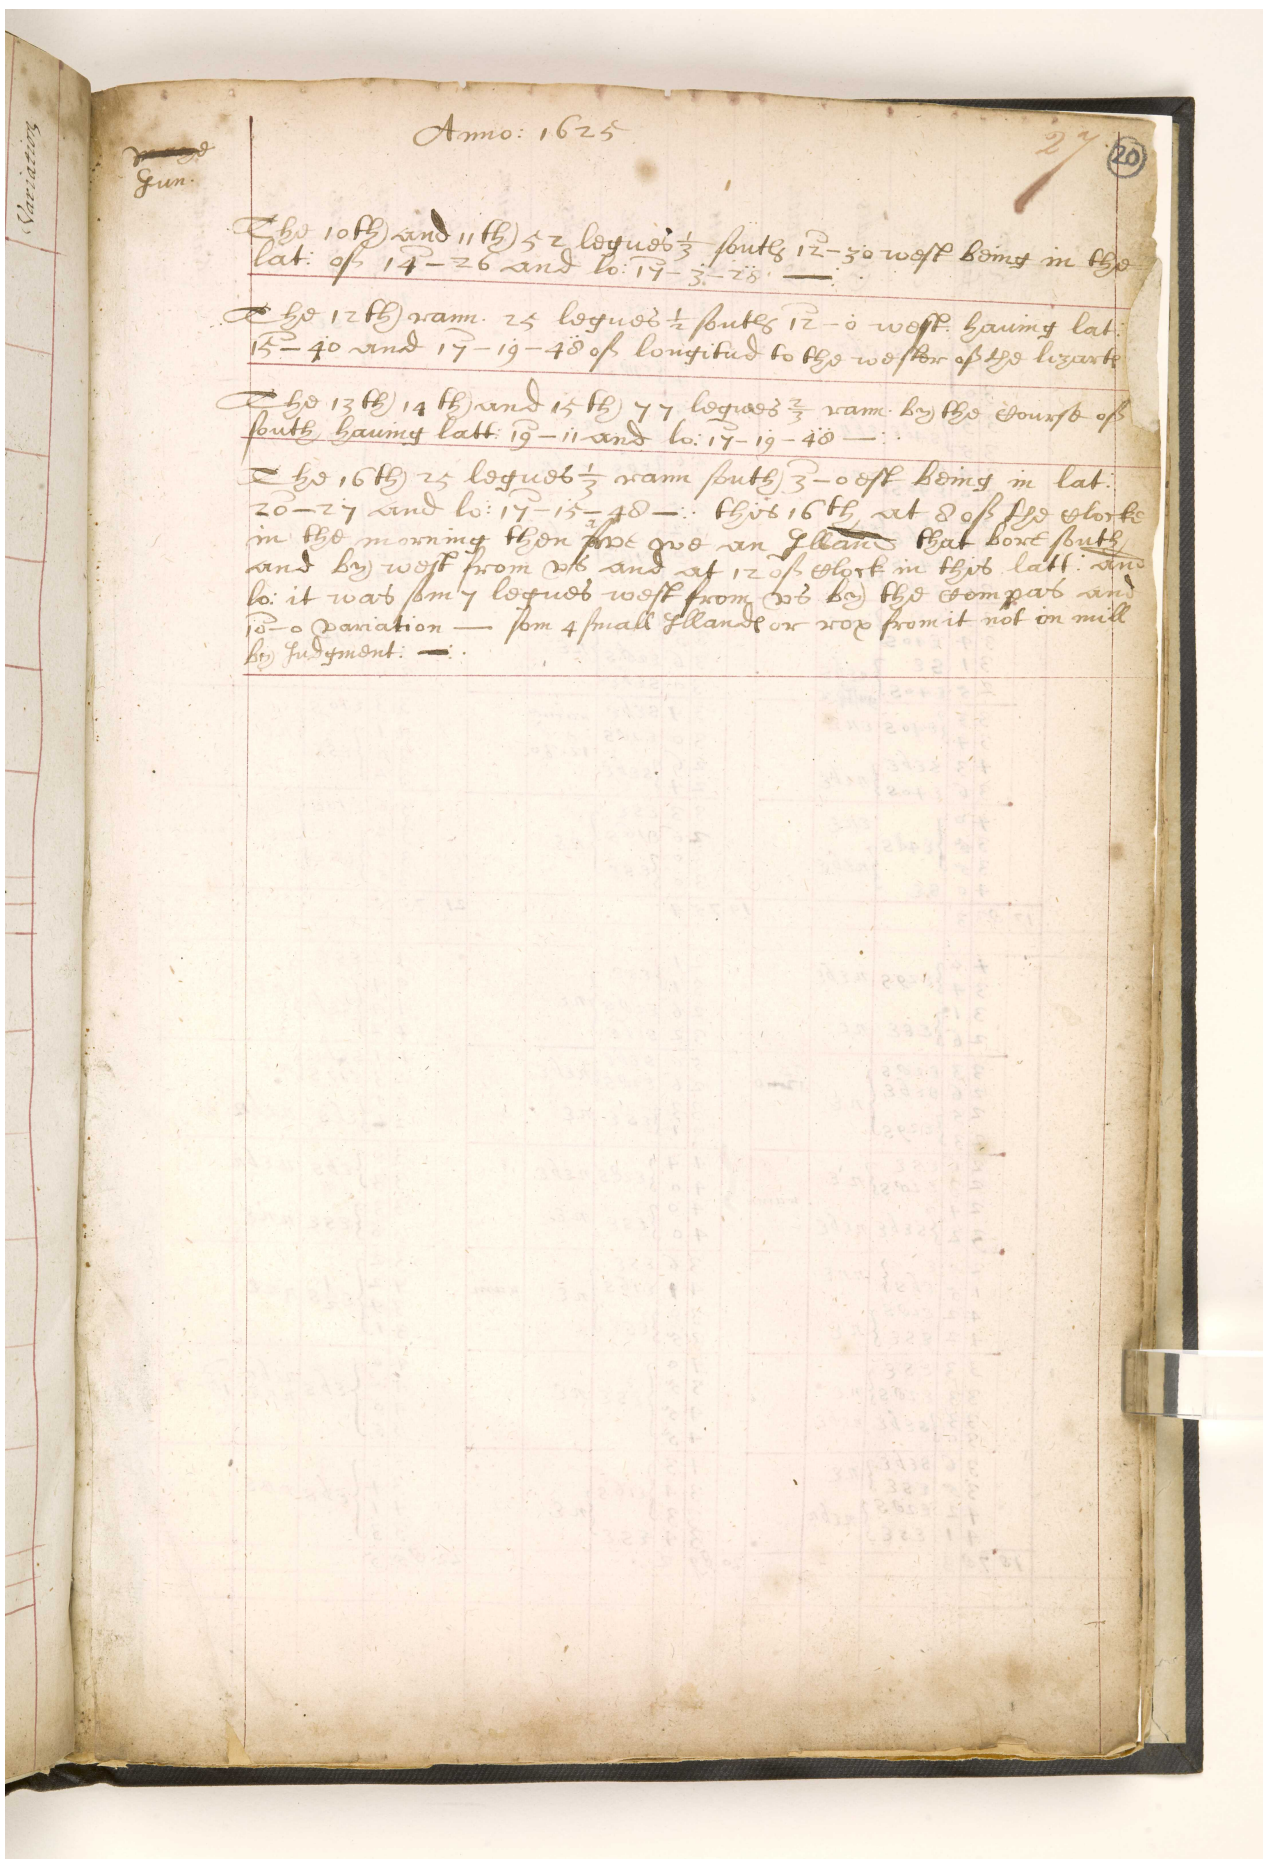 Variation
Anno: 1625
27
20
Jun.
The 10th and 11th 52 legues 1/3 south 12–30 west being in the
lat: of 14–26 and lo: 17–3–28 —:
The 12th rann. 25 legues 1/2 south 12–0 west. having lat:
15–40 and 17–19–48 of longitud to the wester of the lizarte
The 13th 14th and 15th 77 legues 2/3 rann. by the course of
south having latt: 19–11 and lo: 17–19–48 —:
The 16th 25 legues 1/3 rann south 3–0 est being in lat:
20–27 and lo: 17–15–48 —: this 16th at 8 of the clocke
in the morning then we an Illand that bore south
and by west from vs and at 12 of clock in this latt: and
lo: it was som 7 legues west from vs by the compas and
–0 variation — som 4 small Illands or rox from it not on mill
by Judgment: —: